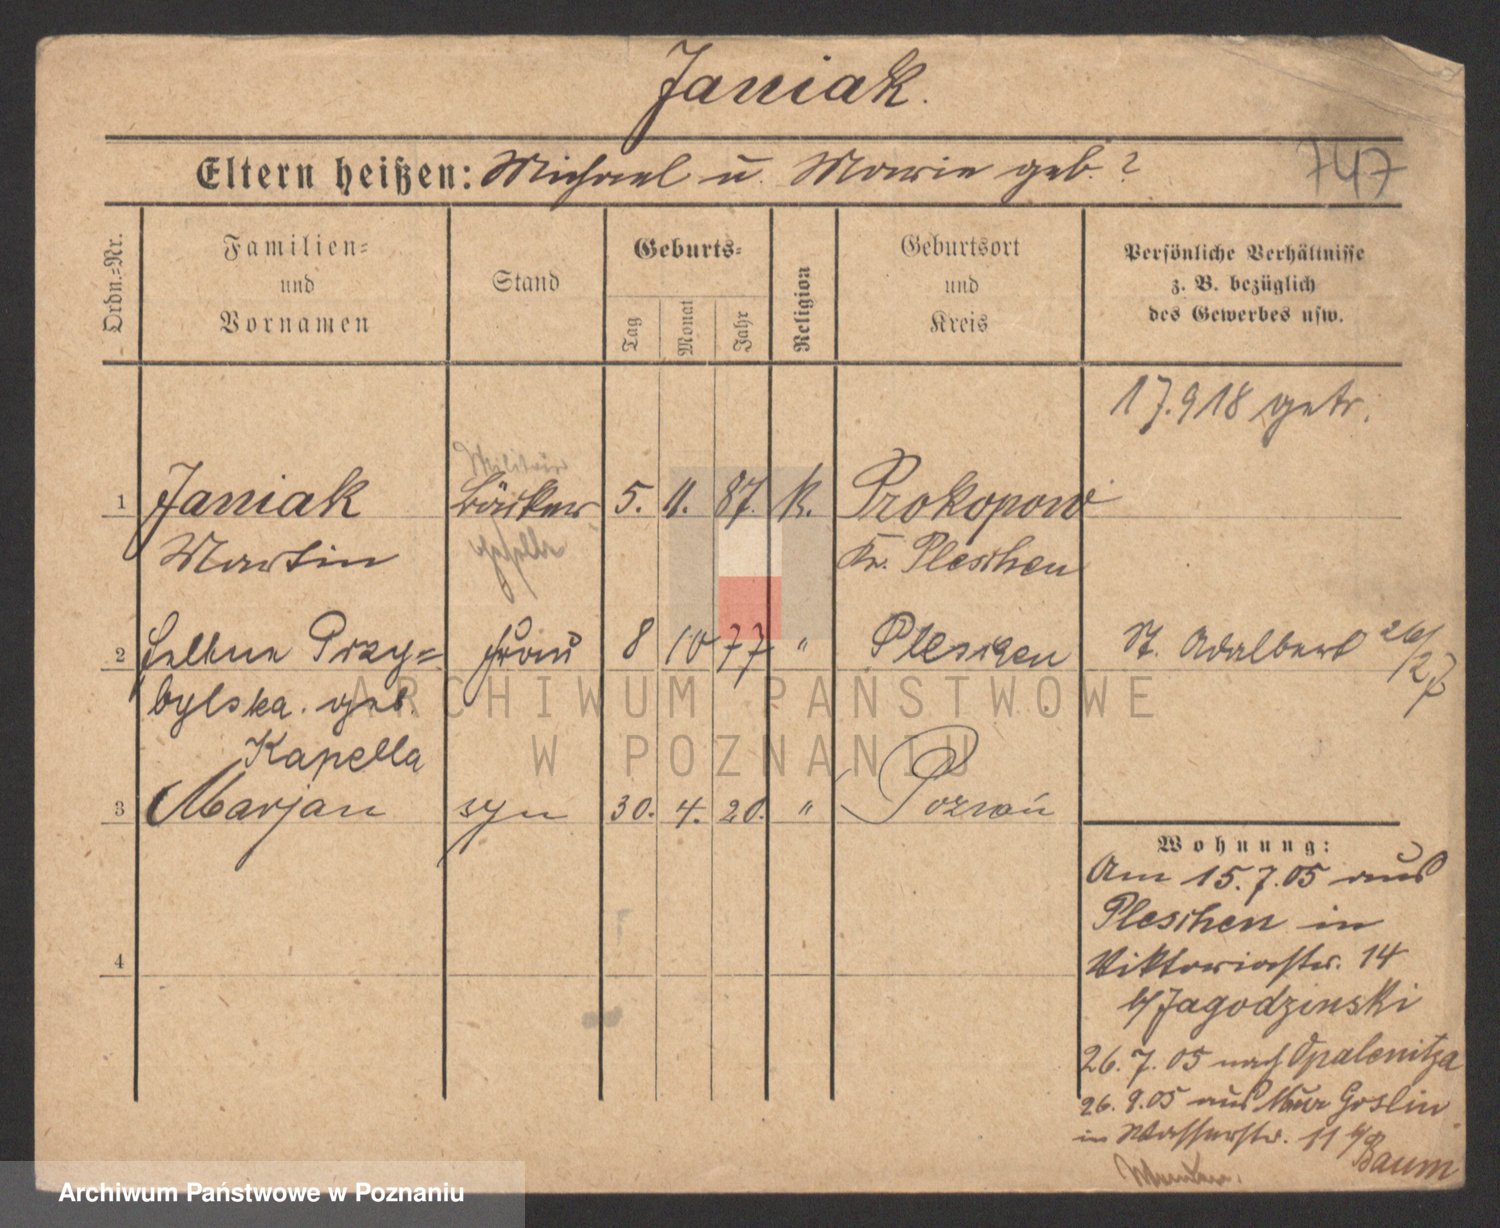 Janiak.
Eltern heißen: Michael u. Marie geb. ?
747
Ordn.=Nr.
Familien=
und
Vornamen
Stand
Geburts=
Tag
Monat
Jahr
Religion
Geburtsort
und
Kreis
Persönliche Verhältnisse
z. B. bezüglich
des Gewerbes usw.
17.918 getr.
Militär
1 Janiak Bäcker 5. 11. 87. K. Prokopow
Martin geselle Kr. Pleschen
2 Przy= Frau 8 10 77 " Pleschen St. Adalbert 26/27
bylska. geb
Kapella
3 Marjan syn 30. 4. 20. " Poznań
4
Wohnung:
Am 15.7.05 aus
Pleschen in
Viktoriastr. 14
b/ Jagodzinski
26.7.05 nach Opalenitza
26.9.05 aus Mur Goslin
in Wasserstr. 11 b/
Baum
ARCHIWUM PAŃSTWOWE
W POZNANIU
Archiwum Państwowe w Poznaniu